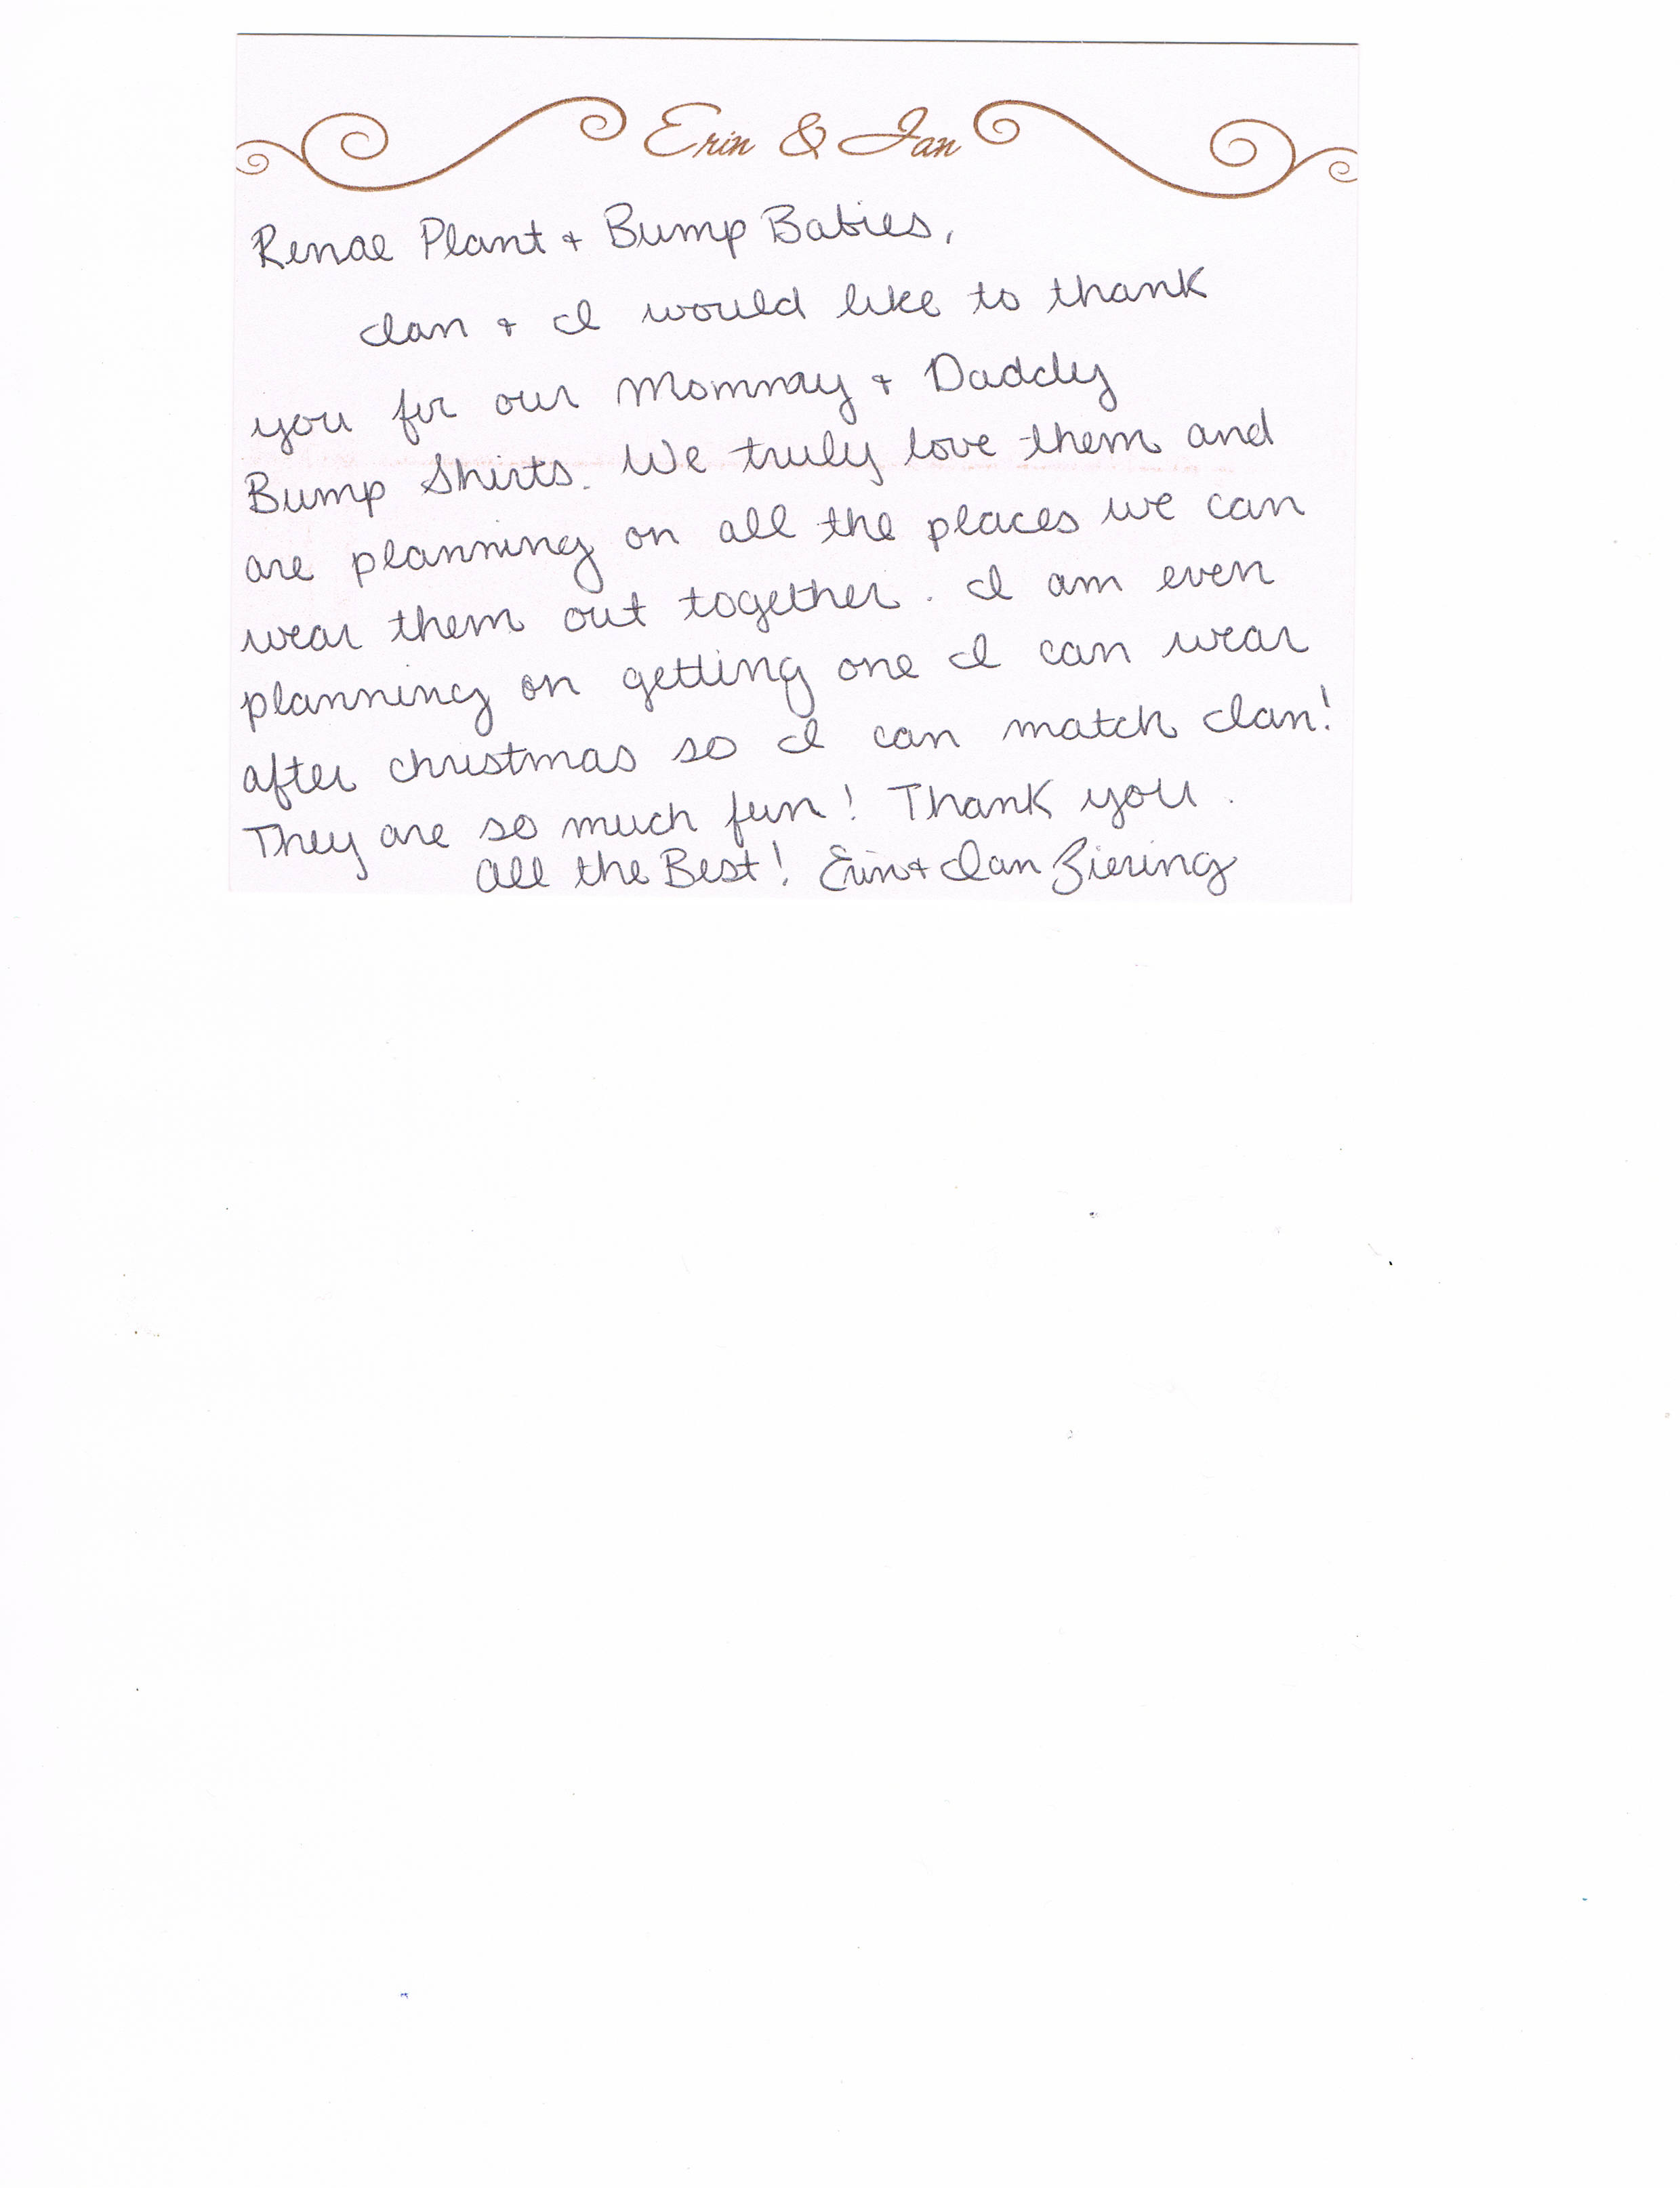 Erin & Ian
Renae Plant + Bump Babies,
Ian + I would like to thank
you for our Mommy + Daddy
Bump Shirts. We truly love them and
are planning on all the places we can
wear them out together. I am even
planning on getting one I can wear
after christmas so I can match Ian!
They are so much fun! Thank you.
All the Best! Erin + Ian Ziering